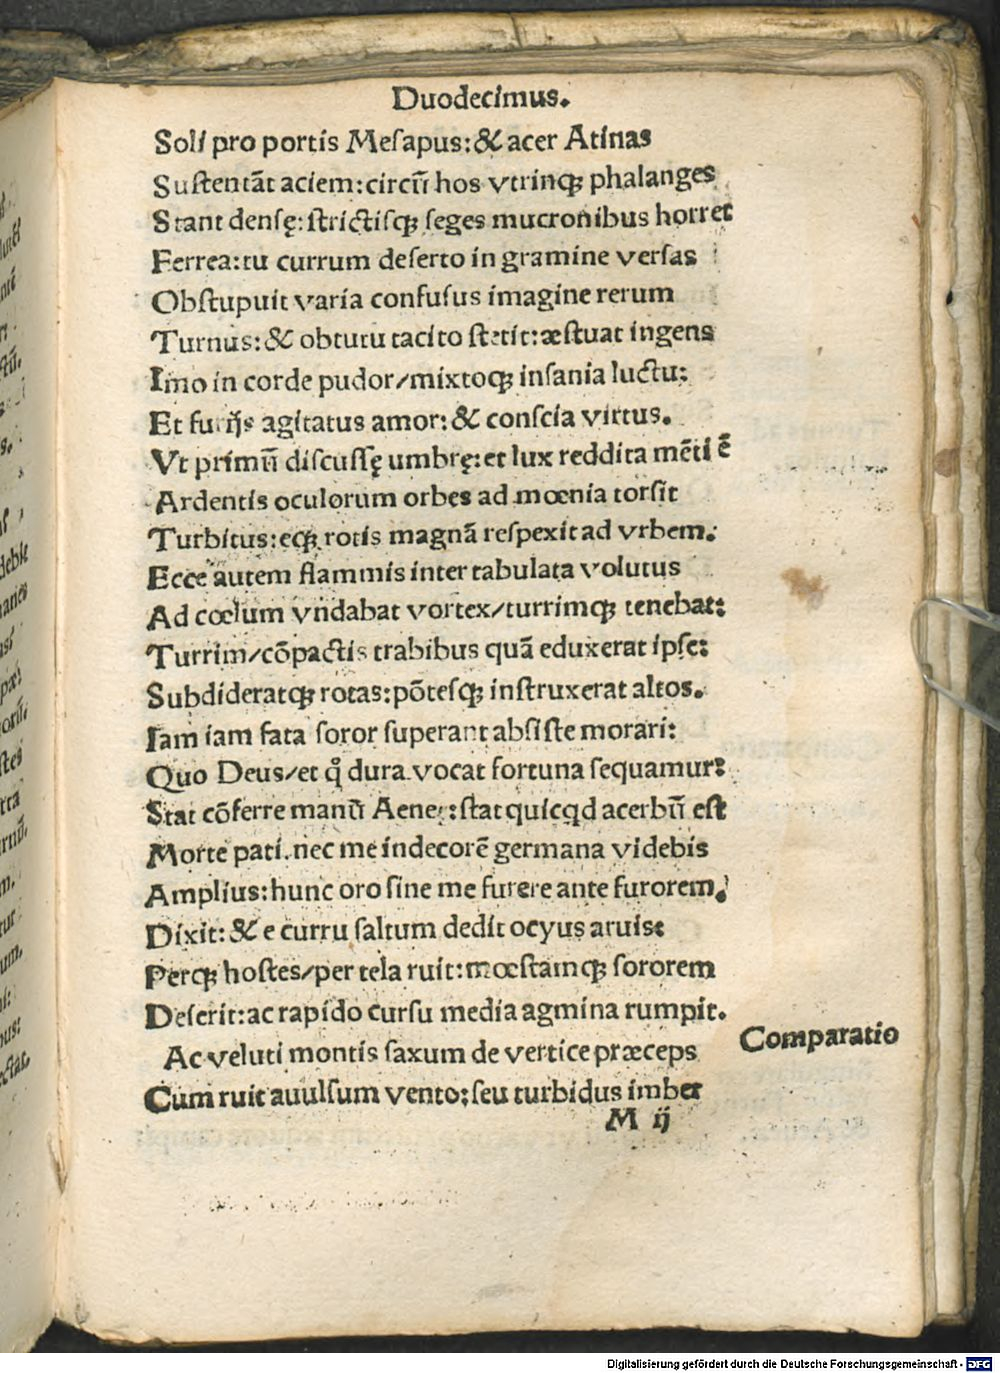 Duodecimus.
Soli pro portis Meſapus: & acer Atinas
Suſtentãt aciem: circũ hos vtrinqꝫ phalanges
Stant denſę: ſtrictiſqꝫ ſeges mucronibus horret
Ferrea: tu currum deſerto in gramine verſas
Obſtupuit varia confuſus imagine rerum
Turnus: & obtutu tacito ſtetit: æſtuat ingens
Imo in corde pudor/mixtoqꝫ inſania luctu:
Et furijs agitatus amor: & conſcia virtus.
Vt primũ diſcuſſę umbrę: et lux reddita mẽti ẽ
Ardentis oculorum orbes ad mœnia torſit
Turbitus: eqꝫ rotis magnã reſpexit ad vrbem:
Ecce autem flammis inter tabulata volutus
Ad cœlum vndabat vortex/turrimqꝫ tenebat:
Turrim/cõpactis trabibus quã eduxerat ipſe:
Subdideratqꝫ rotas: põteſqꝫ inſtruxerat altos.
Iam iam fata ſoror ſuperant abſiſte morari:
Quo Deus/et q̃ dura vocat fortuna ſequamur:
Stat cõferre manũ Aeneę: ſtat quicqd acerbũ eſt
Morte pati. nec me indecorẽ germana videbis
Amplius: hunc oro ſine me furere ante furorem.
Dixit: & e curru ſaltum dedit ocyus aruis:
Perqꝫ hoſtes/per tela ruit: mœſtamqꝫ ſororem
Deſerit: ac rapido curſu media agmina rumpit.
Ac veluti montis ſaxum de vertice præceps
Comparatio
Cum ruit auulſum vento; ſeu turbidus imber
M ij
Digitalisierung gefördert durch die Deutsche Forschungsgemeinschaft - DFG